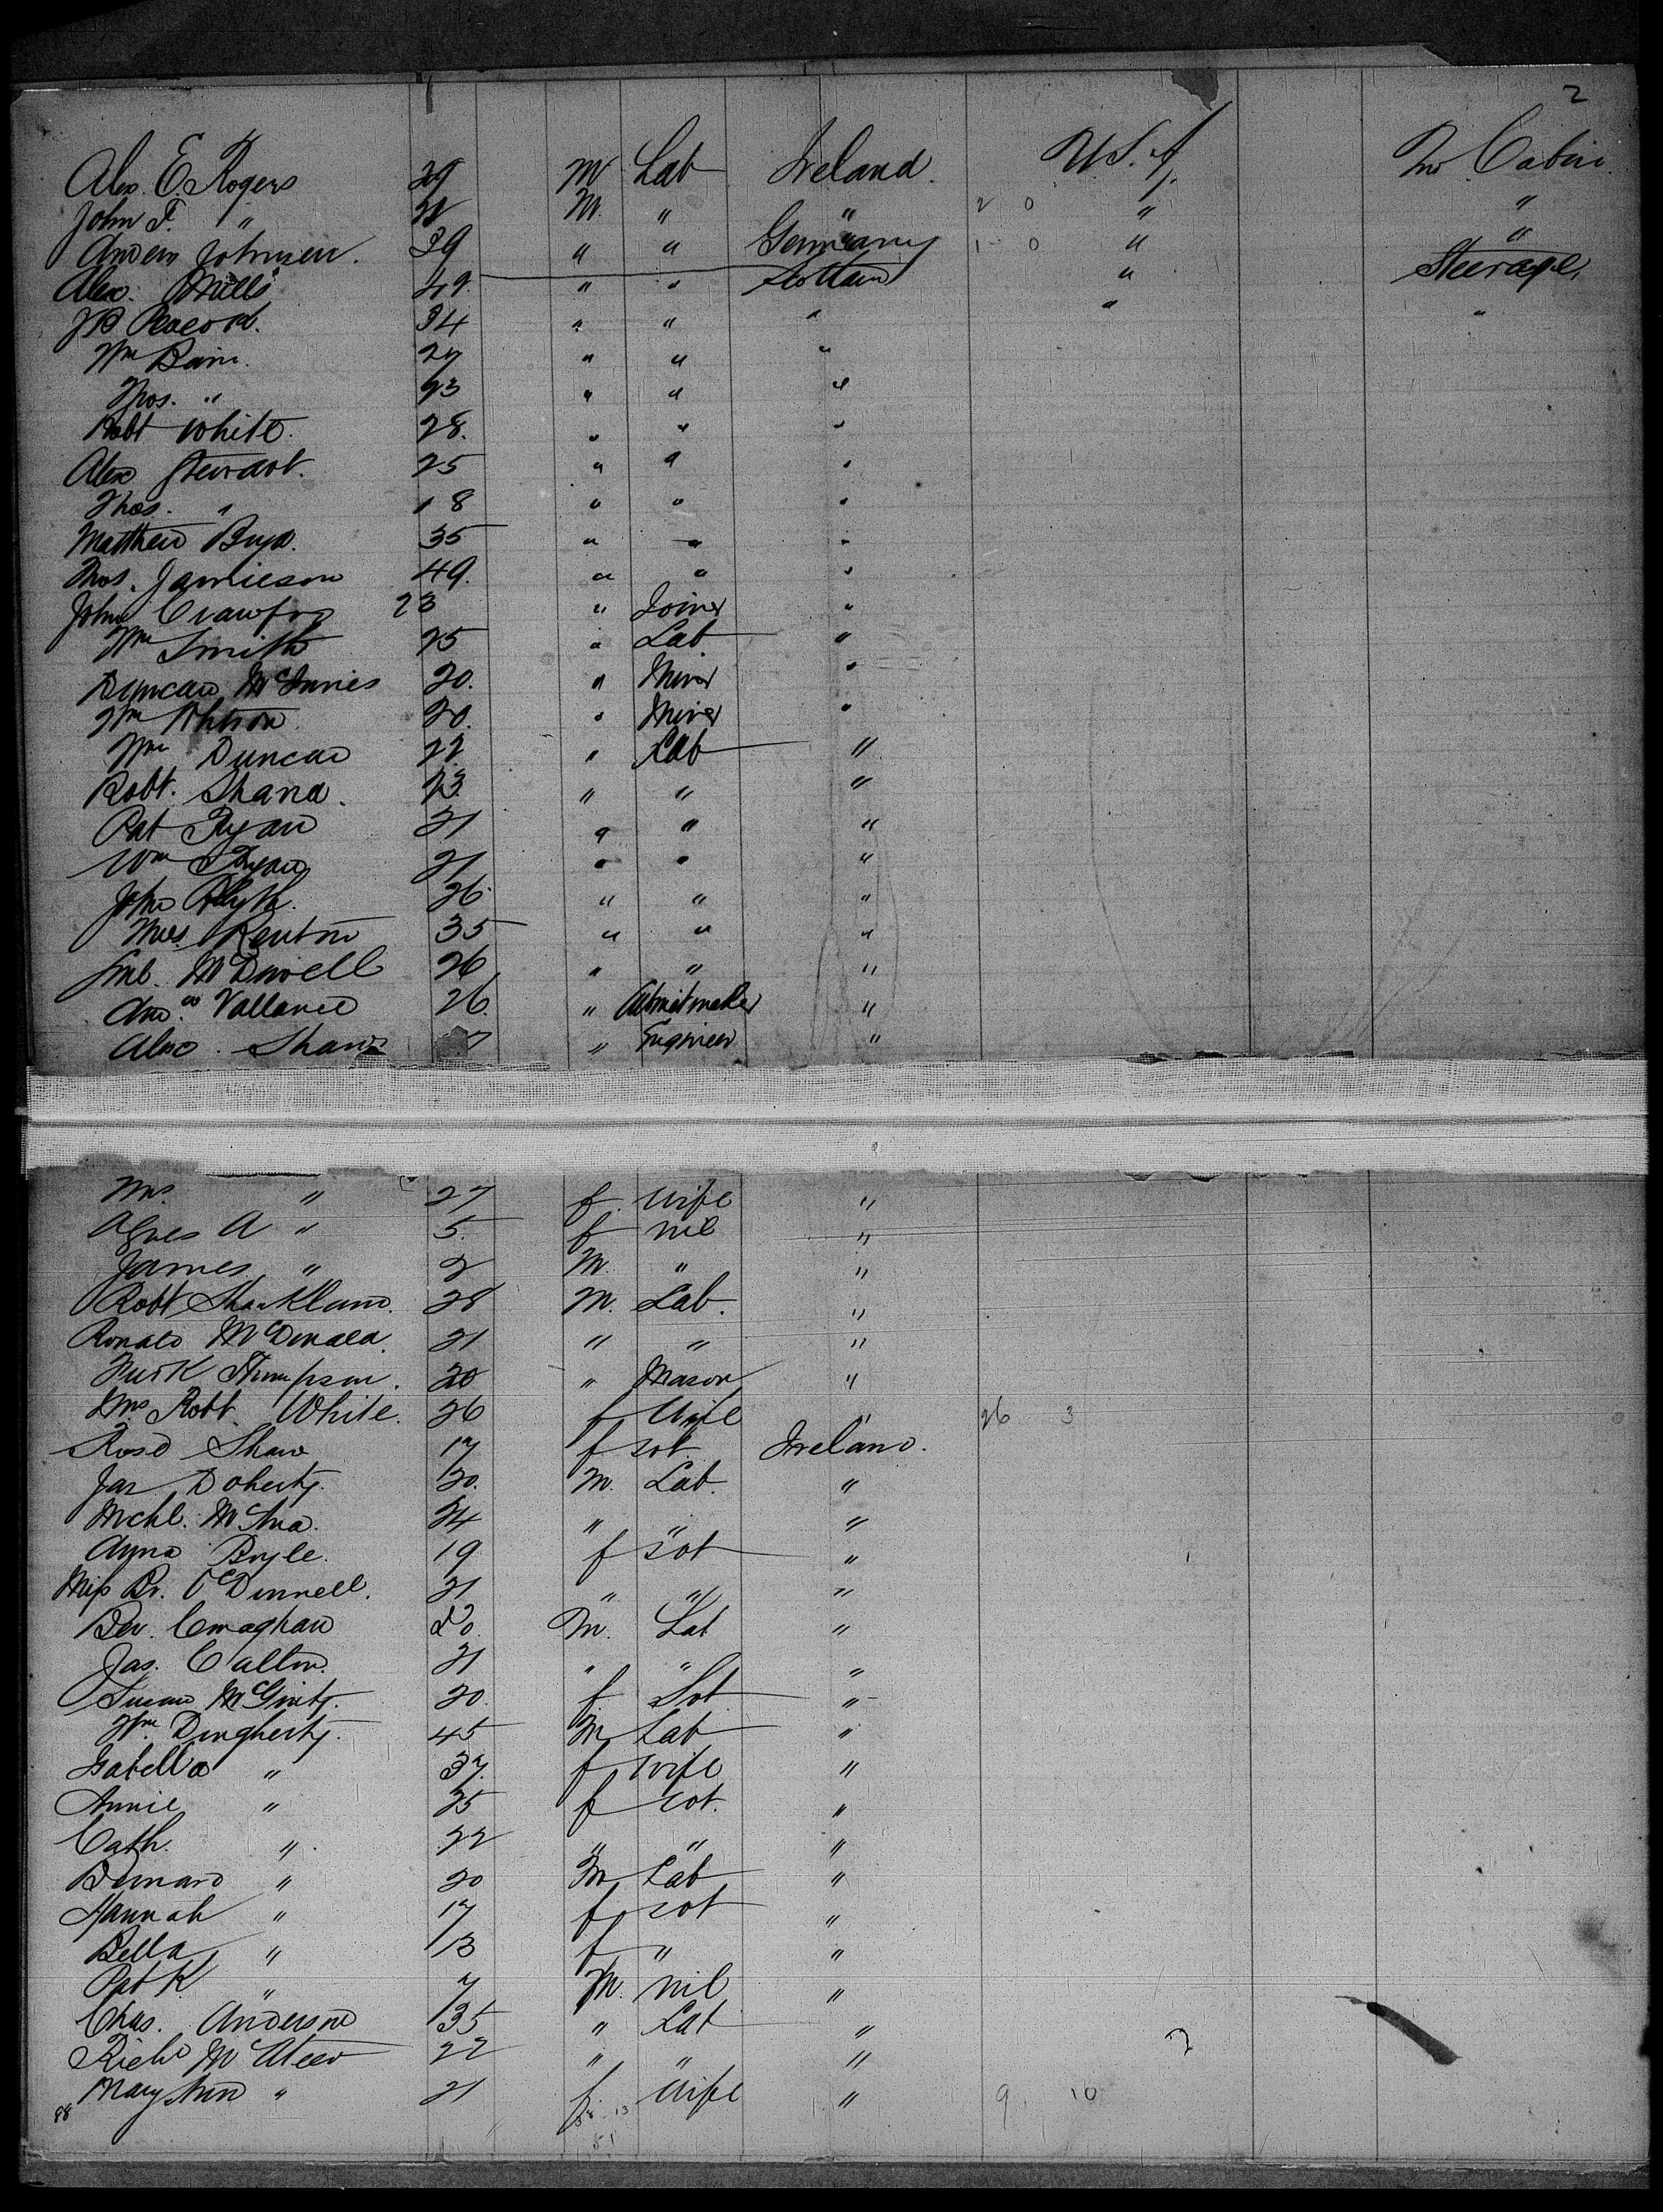 2
Alex. E Rogers 29 M Lab Ireland. U.S.A. Cabin
John F. " M. " " 2 0 " "
39 " " Germany 1 0 " "
Alex. Mills 49. " " Scotland " Steerage
J B Peacock. 34 " " " " "
Wm Bain. 27 " " "
Thos. " 23 " " "
Robt White. 28. " " "
Alex Stewart. 25 " " "
Thos. " 18 " " "
Matthew Boyd. 35 " " "
Thos. Jamieson 49. " " "
John Crawford 23 " Joiner "
Wm Smith 25 " Lab "
Duncan McInnes 20. " Miner "
Wm 20. " Miner "
Wm Duncan 22. " Lab "
Robt. Shand. 23. " " "
Pat Ryan 21 " " "
Wm Ryan 21 " " "
John Blyth. 26 " " "
Renton 35 " " "
McDowell 26 " " "
Vallance 26. " Cabinetmaker "
Alex. Shaw 7 " Engineer "
Mrs. " 27 f. wife "
Agnes A " 5. f nil "
James " 2 M. " "
Robt Shankland. 28 M. Lab. "
Ronald McDonald. 21 " " "
Thompson. 20 " Mason "
Mrs Robt. White. 26 f Wife " 26 3
Rose Shaw 17 f sot Ireland.
Jas Doherty. 20. M. Lab. "
Mchl. 24 " " "
Anna Boyle. 19 f sot "
Miss Br. O'Donnell. 21 " " "
20. M. Lab "
Jas. 21 " " "
Susan McGinty. 20. f Sot "
Wm Dougherty. 45 M Lab "
Isabella " 37. f wife "
Annie " 25 f sot. "
Cath. " 22 " " "
Bernard " 20 M Lab "
Hannah " 17 f sot "
Bella " 13 f " "
Patk " 7 M. nil "
Chas. Anderson 35 " Lab "
Richd 22 " " "
Mary Ann " 21 f wife " 9 10
51